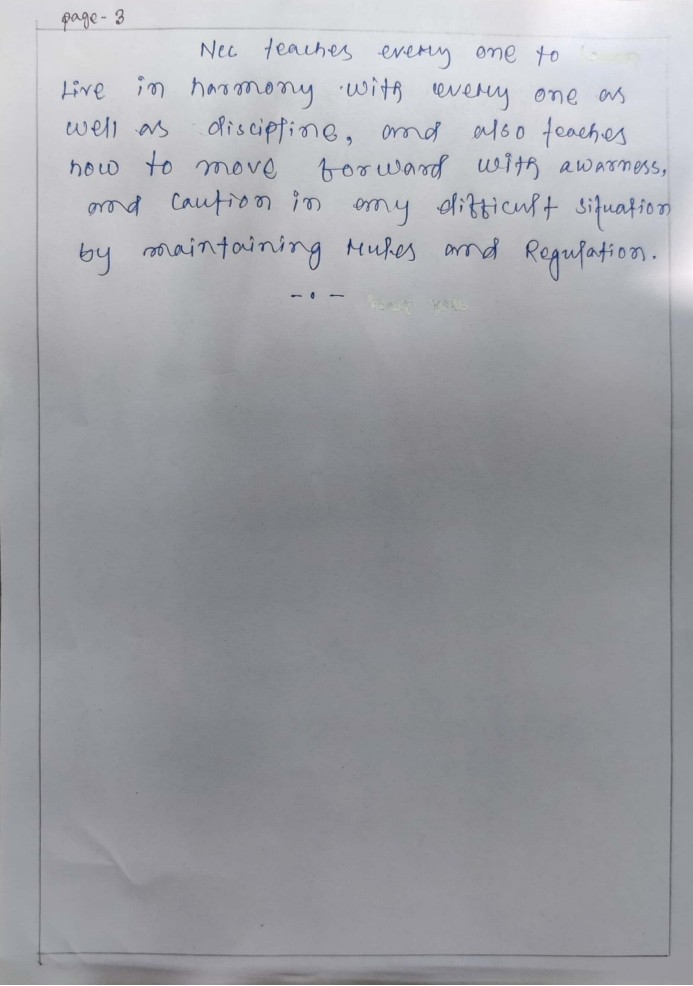 page- 3
Ncc teaches every one to
Live in harmony with every one as
well as discipline, and also teaches
how to move forward with awarness,
and caution in any difficult situation
by maintaining rules and Regulation.
- . -